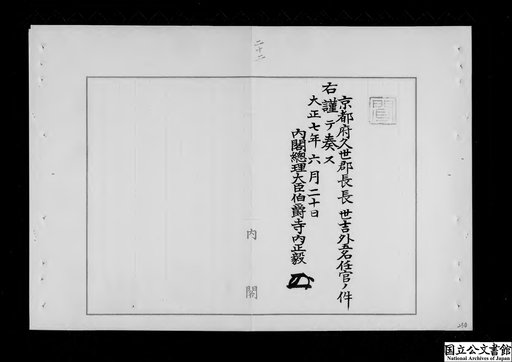 二十二
京都府久世郡長長世吉外五名任官ノ件
右謹テ奏ス
大正七年六月二十日
内閣總理大臣伯爵寺内正毅
内閣
国立公文書館
National Archives of Japan